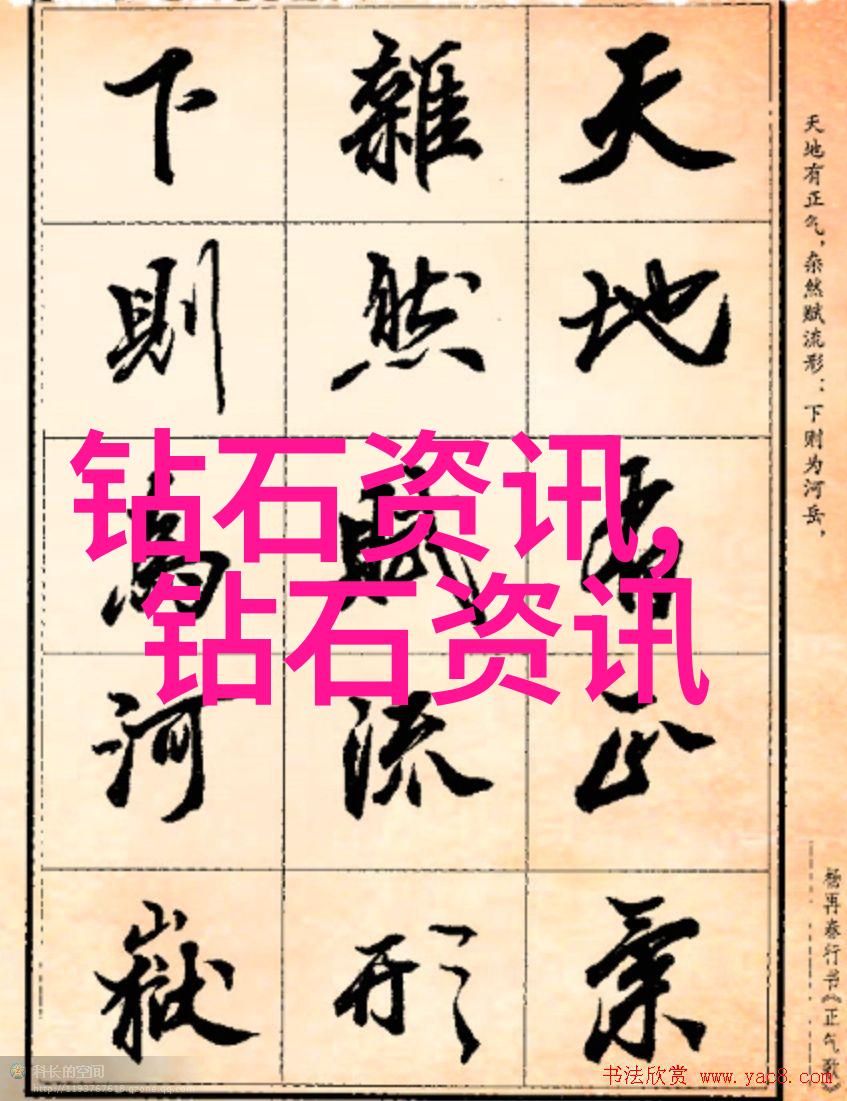 天地有正氣
雜然賦流形
下則為河嶽
天地有正气，杂然赋流形：下则为河岳，
杨再春行书《正气歌》
钻石资讯，
钻石资讯
科长的空间
http://1193767618.qzone.qq.com
书法欣赏 www.yac8.com